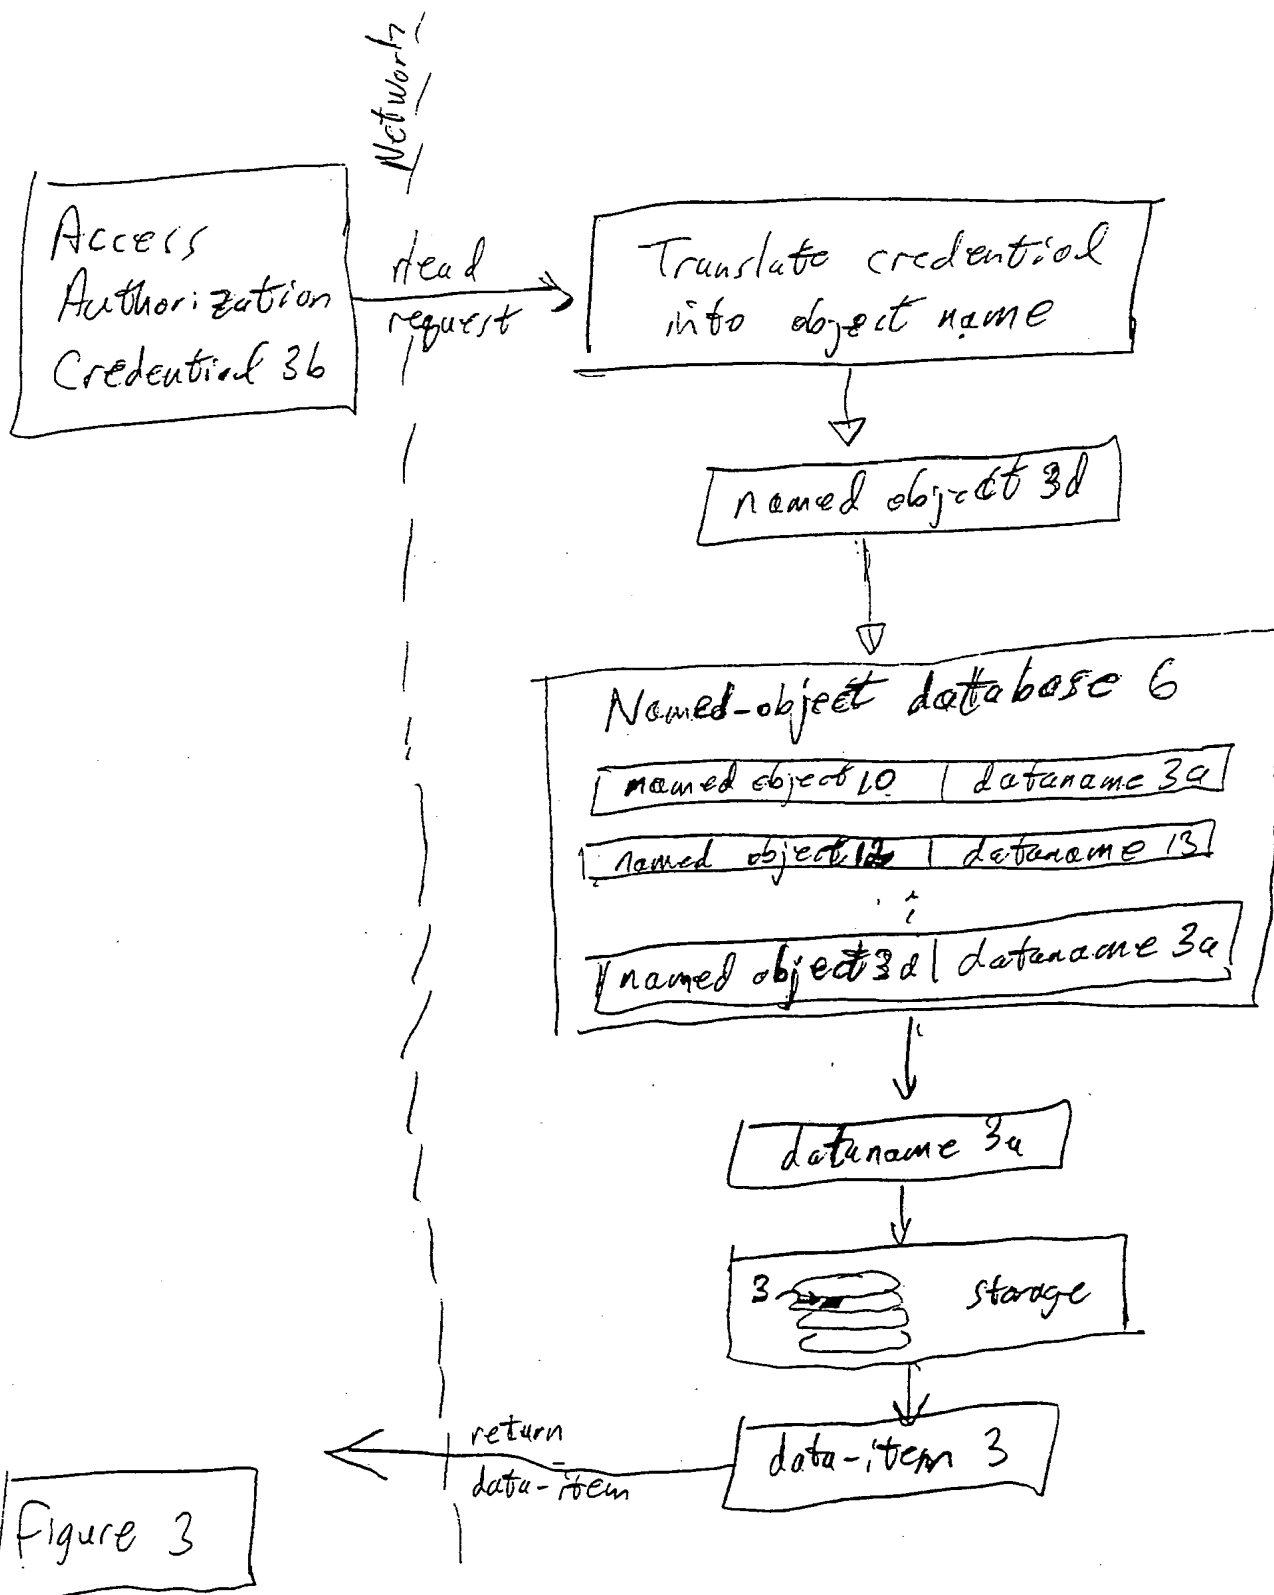 Network
Access
Authorization
Credential 3b
read
request
Translate credential
into object name
named object 3d
Named-object database 6
named object 10 dataname 3a
named object 12 dataname 13
named object 3d dataname 3a
dataname 3a
3 storage
return
data-item
data-item 3
Figure 3